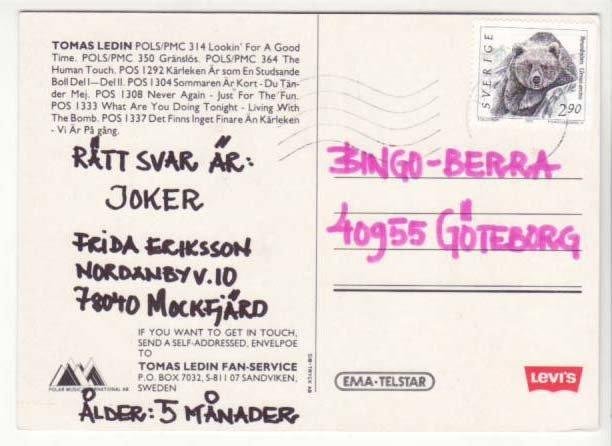 TOMAS LEDIN POLS/PMC 314 Lookin' For A Good
Time. POLS/PMC 350 Gränslös. POLS/PMC 364 The
Human Touch. POS 1292 Kärleken Är som En Studsande
Boll Del I—Del II. POS 1304 Sommaren Är Kort - Du Tän-
der Mej. POS 1308 Never Again - Just For The Fun.
POS 1333 What Are You Doing Tonight - Living With
The Bomb. POS 1337 Det Finns Inget Finare Än Kärleken
- Vi Är På gång.
RÄTT SVAR ÄR:
JOKER
FRIDA ERIKSSON
NORDANBYV.10
78040 MOCKFJÄRD
IF YOU WANT TO GET IN TOUCH,
SEND A SELF-ADDRESSED, ENVELPOE
TO
TOMAS LEDIN FAN-SERVICE
P.O. BOX 7032, S-811 07 SANDVIKEN,
SWEDEN
POLAR MUSIC INTERNATIONAL AB
ÅLDER: 5 MÅNADER
SVERIGE
Brunbjörn Ursus arctos
2.90
BINGO-BERRA
40955 GÖTEBORG
EMA-TELSTAR
LEVI'S